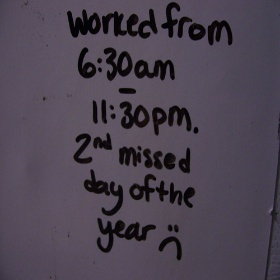 Worked from
6:30am
-
11:30pm.
2nd missed
day of the
year :(